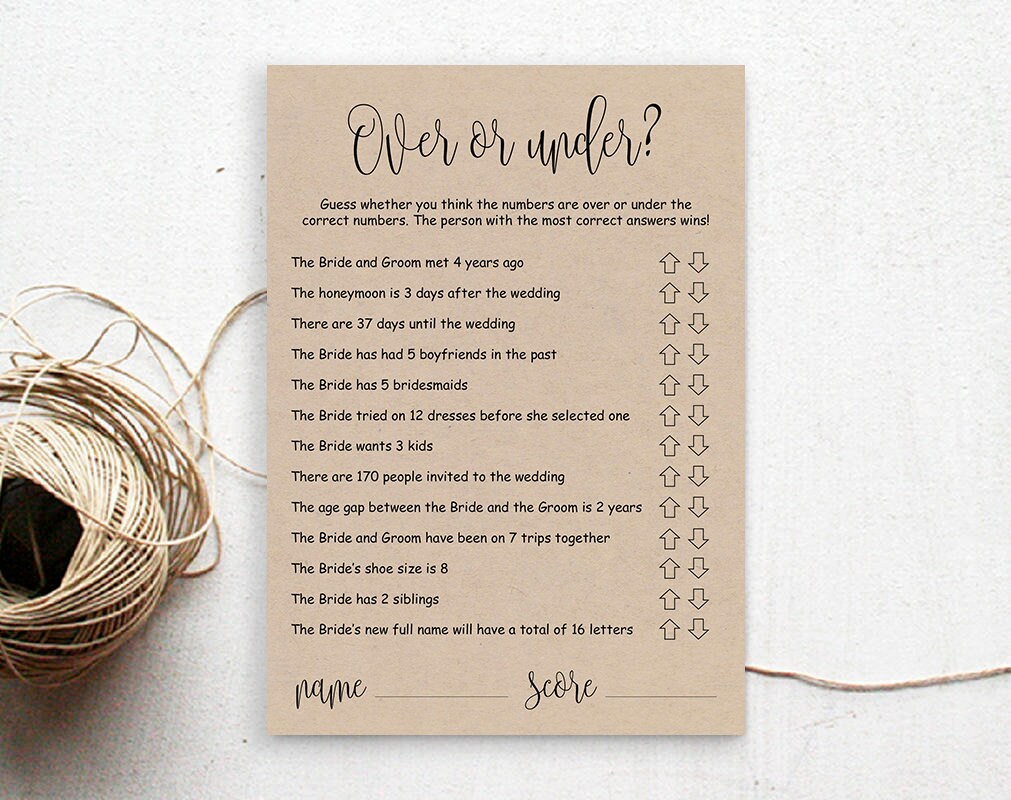 Over or under?
Guess whether you think the numbers are over or under the
correct numbers. The person with the most correct answers wins!
The Bride and Groom met 4 years ago
The honeymoon is 3 days after the wedding
There are 37 days until the wedding
The Bride has had 5 boyfriends in the past
The Bride has 5 bridesmaids
The Bride tried on 12 dresses before she selected one
The Bride wants 3 kids
There are 170 people invited to the wedding
The age gap between the Bride and the Groom is 2 years
The Bride and Groom have been on 7 trips together
The Bride's shoe size is 8
The Bride has 2 siblings
The Bride's new full name will have a total of 16 letters
name score